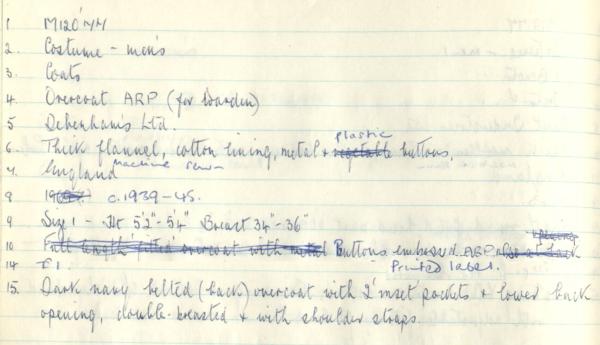 1 M120'77
2. Costume - men's
3. Coats
4. Overcoat ARP (for Warden)
5 Debenham's Ltd.
plastic
6. Thick flannel, cotton lining, metal + vegetable buttons.
7. England machine sewn
8 c.1939-45.
9 Size 1 - Ht 5'2"-5'4" Breast 34"-36"
opening
10 Full length fitted overcoat with metal Buttons embossed ARP also at back
14 F1. Printed label.
15. Dark navy belted (back) overcoat with 2 inset pockets + lower back
opening, double-breasted + with shoulder straps.